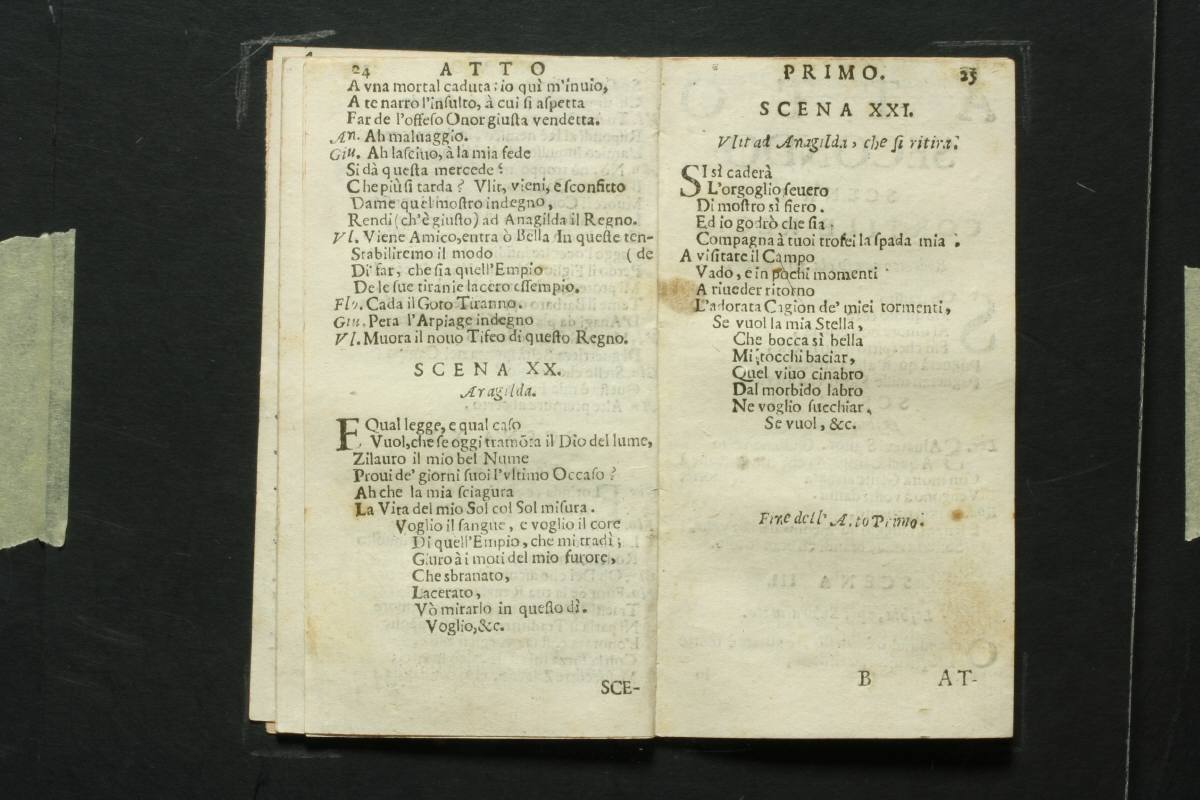 24 ATTO
A vna mortal caduta: io quì m'inuio,
A te narro l'insulto, à cui si aspetta
Far de l'offeso Onor giusta vendetta.
An. Ah maluaggio.
Giu. Ah lasciuo, à la mia fede
Si dà questa mercede?
Che più si tarda? Vlit, vieni, e sconfitto
Dame quel mostro indegno,
Rendi (ch'è giusto) ad Anagilda il Regno.
Vl. Viene Amico, entra ò Bella In queste ten-
Stabiliremo il modo (de
Di far, che sia quell'Empio
De le sue tiranie lacero essempio.
Flo. Cada il Goto Tiranno.
Giu. Pera l'Arpiage indegno
Vl. Muora il nouo Tifeo di questo Regno.
SCENA XX.
Aragilda.
E Qual legge, e qual caso
Vuol, che se oggi tramõta il Dio del lume,
Zilauro il mio bel Nume
Proui de' giorni suoi l'vltimo Occaso?
Ah che la mia sciagura
La Vita del mio Sol col Sol misura.
Voglio il sangue, e voglio il core
Di quell'Empio, che mi tradì;
Giuro à i moti del mio furore,
Che sbranato,
Lacerato,
Vò mirarlo in questo dì.
Voglio, &c.
SCE-
PRIMO. 25
SCENA XXI.
Vlit ad Anagilda, che si ritira.
SI sì caderà
L'orgoglio seuero
Di mostro sì fiero.
Ed io godrò che sia
Compagna à tuoi trofei la spada mia.
A visitare il Campo
Vado, e in pochi momenti
A riueder ritorno
L'adorata Cagion de' miei tormenti,
Se vuol la mia Stella,
Che bocca sì bella
Mi tocchi baciar,
Quel viuo cinabro
Dal morbido labro
Ne voglio succhiar.
Se vuol, &c.
Fine dell' Atto Primo.
B AT-